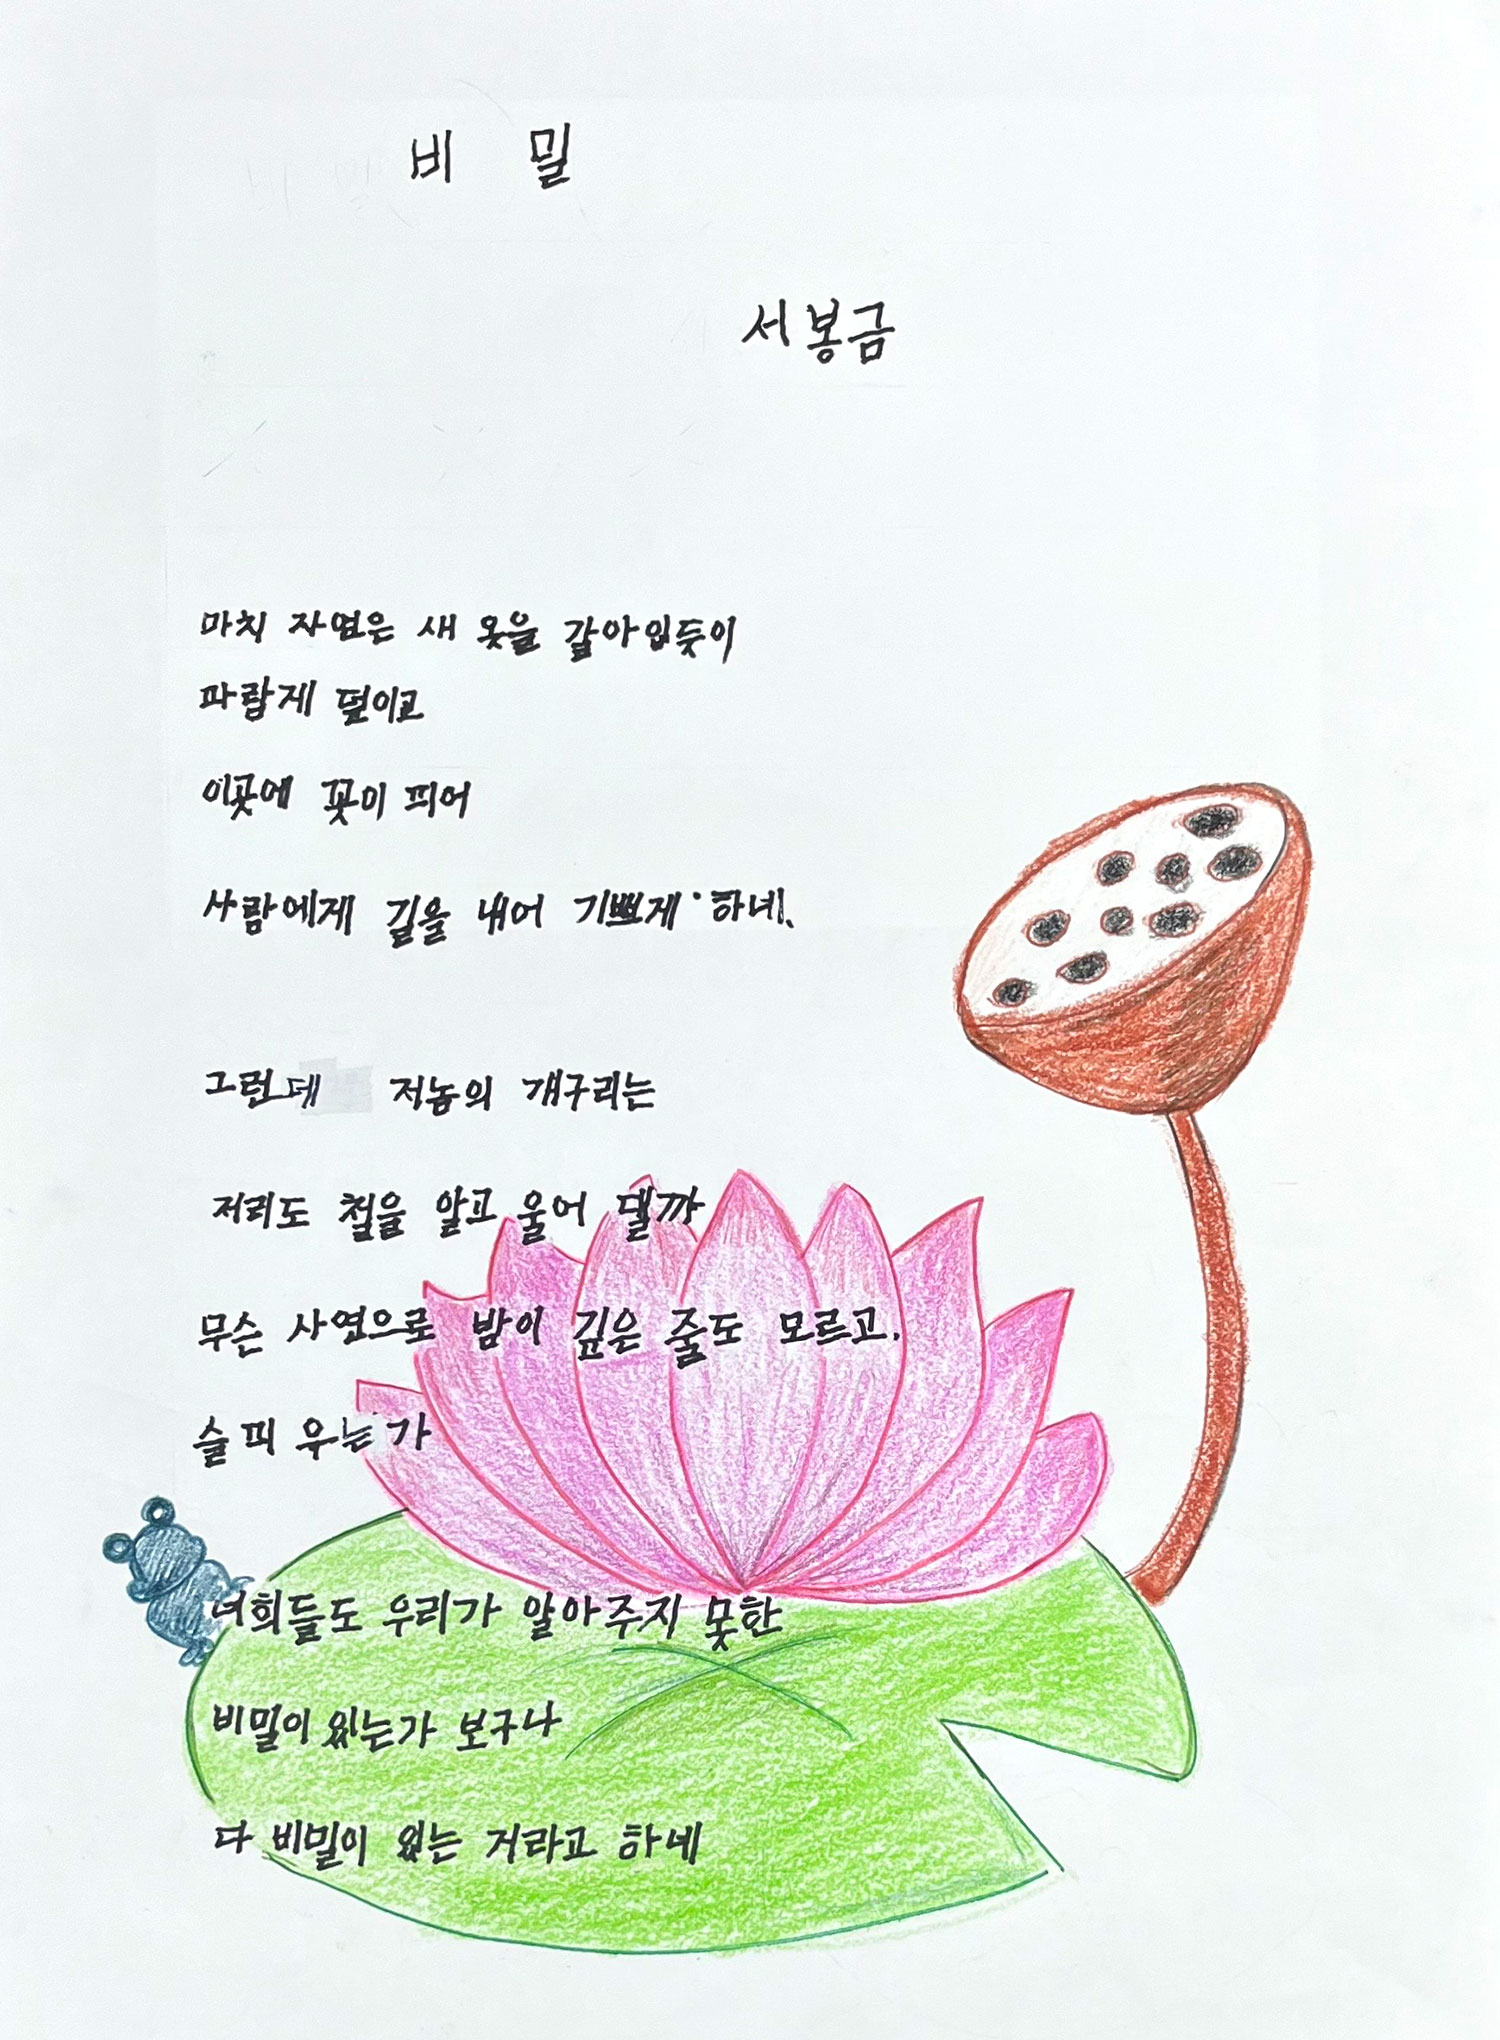 비 밀
서봉금
마치 자연은 새 옷을 갈아입듯이
파랗게 덮이고
이곳에 꽃이 피어
사람에게 길을 내어 기쁘게 하네.
그런데 저놈의 개구리는
저리도 철을 알고 울어 댈까
무슨 사연으로 밤이 깊은 줄도 모르고.
슬피 우는가
너희들도 우리가 알아주지 못한
비밀이 있는가 보구나
다 비밀이 있는 거라고 하네